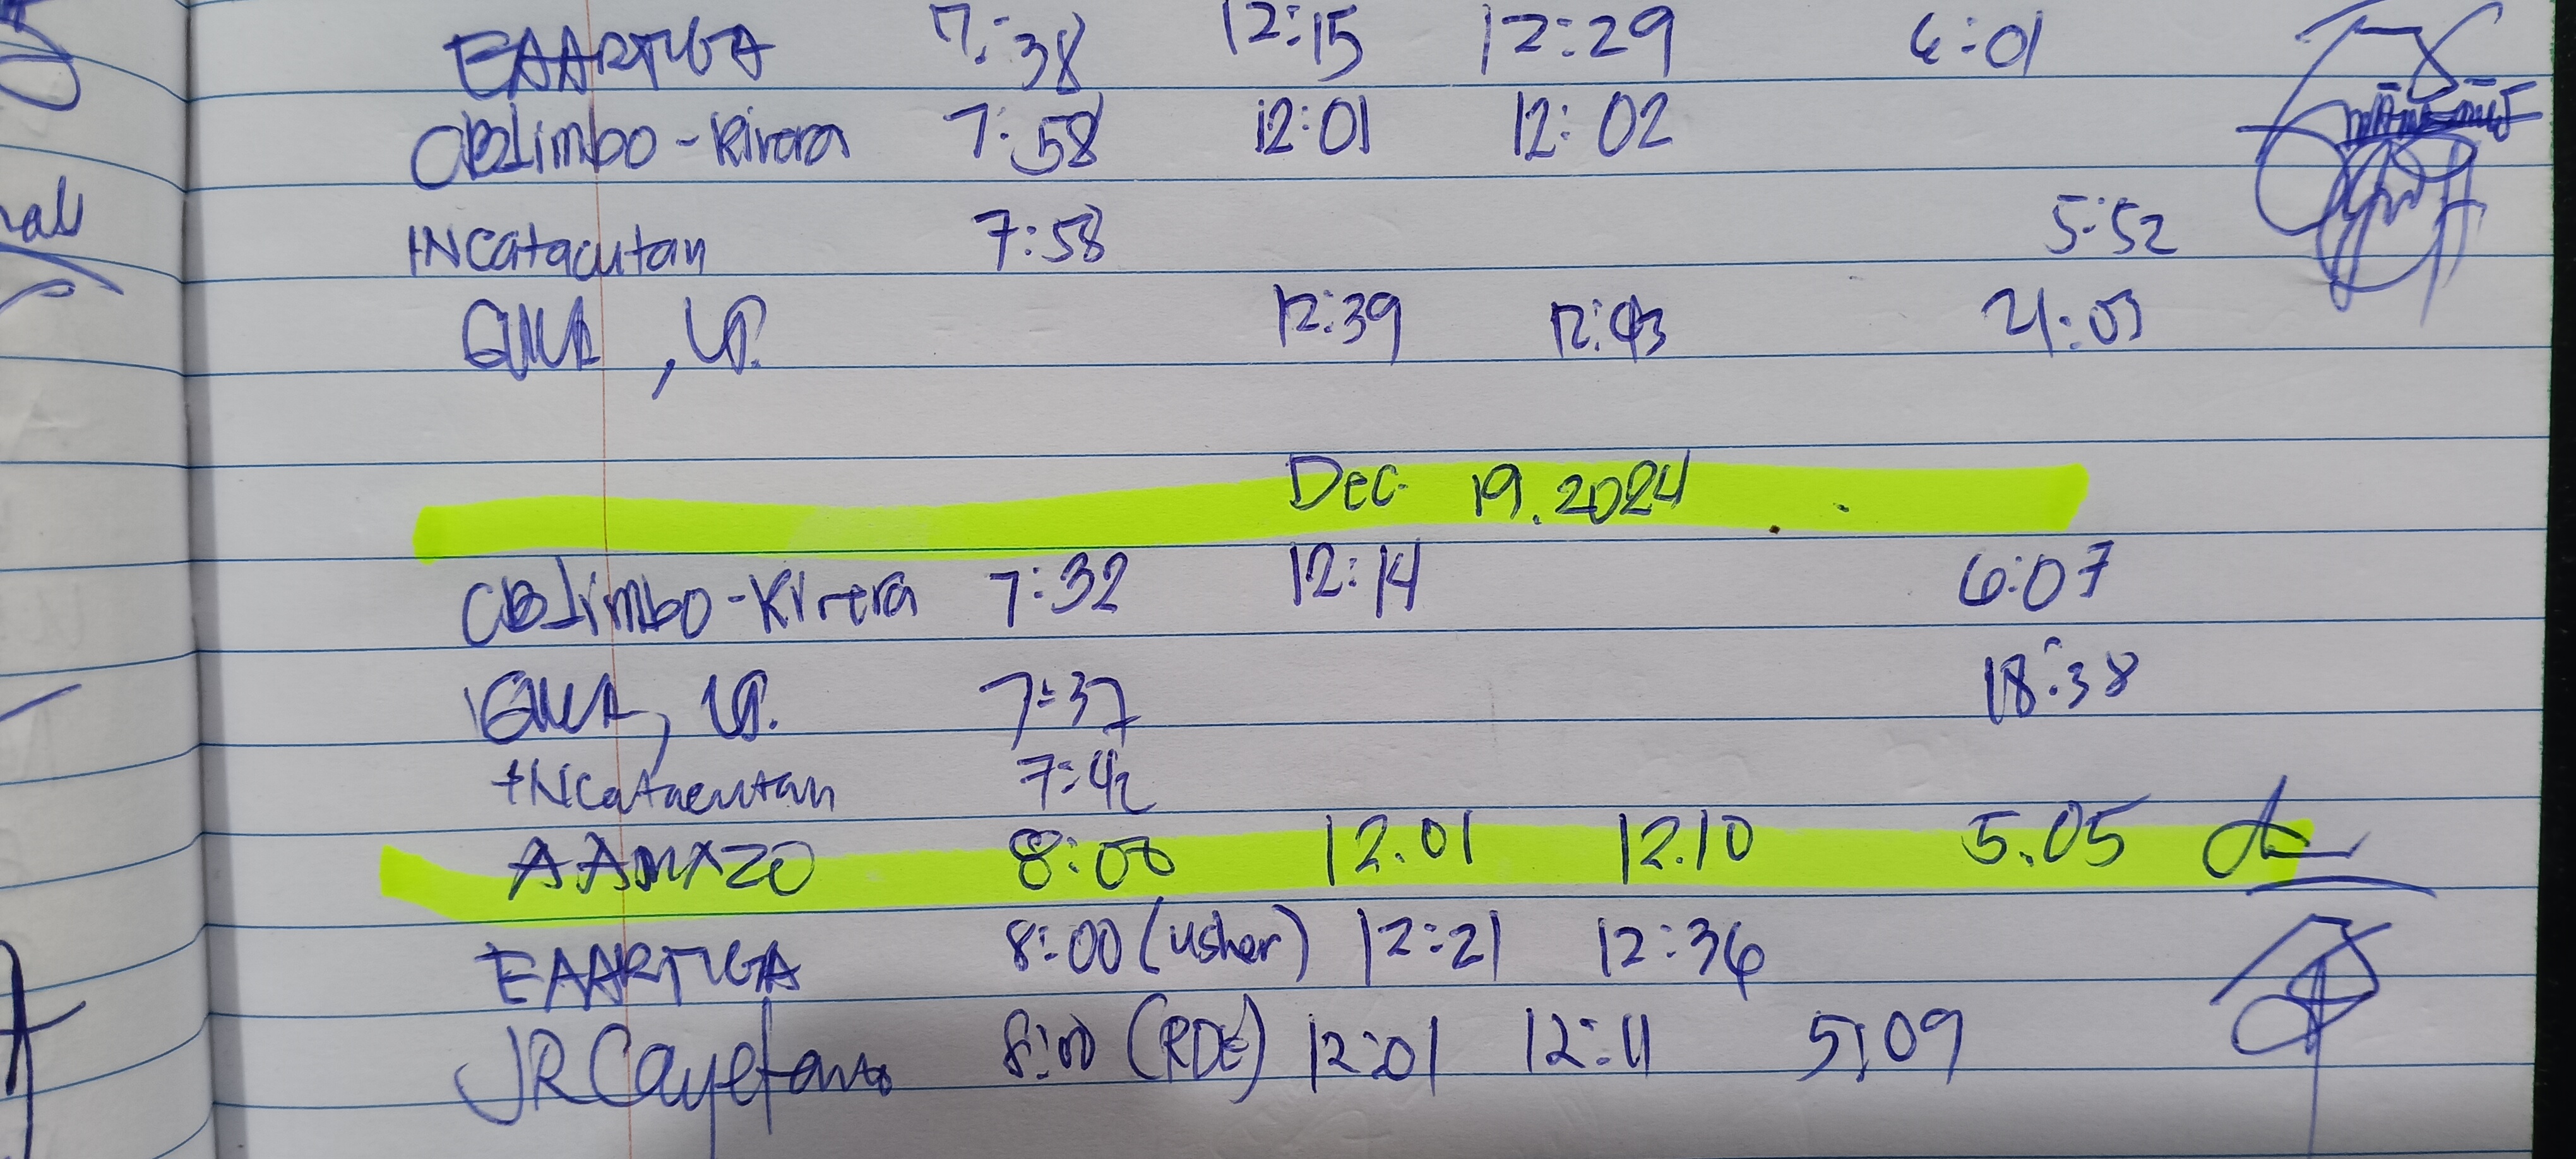 EAARTIGA 7:38 12:15 12:29 6:01
CBJimbo-Rivera 7:58 12:01 12:02
INCatacutan 7:58 5:52
12:39 12:43 21:03
Dec. 19. 2024
CBJimbo-Rivera 7:32 12:14 6:07
7:37 18:38
INCatacutan 7:42
AAMAZO 8:00 12.01 12.10 5.05
EAARTIGA 8:00 (usher) 12:21 12:36
JRCayetano 8:00 (RDE) 12:01 12:11 5:09